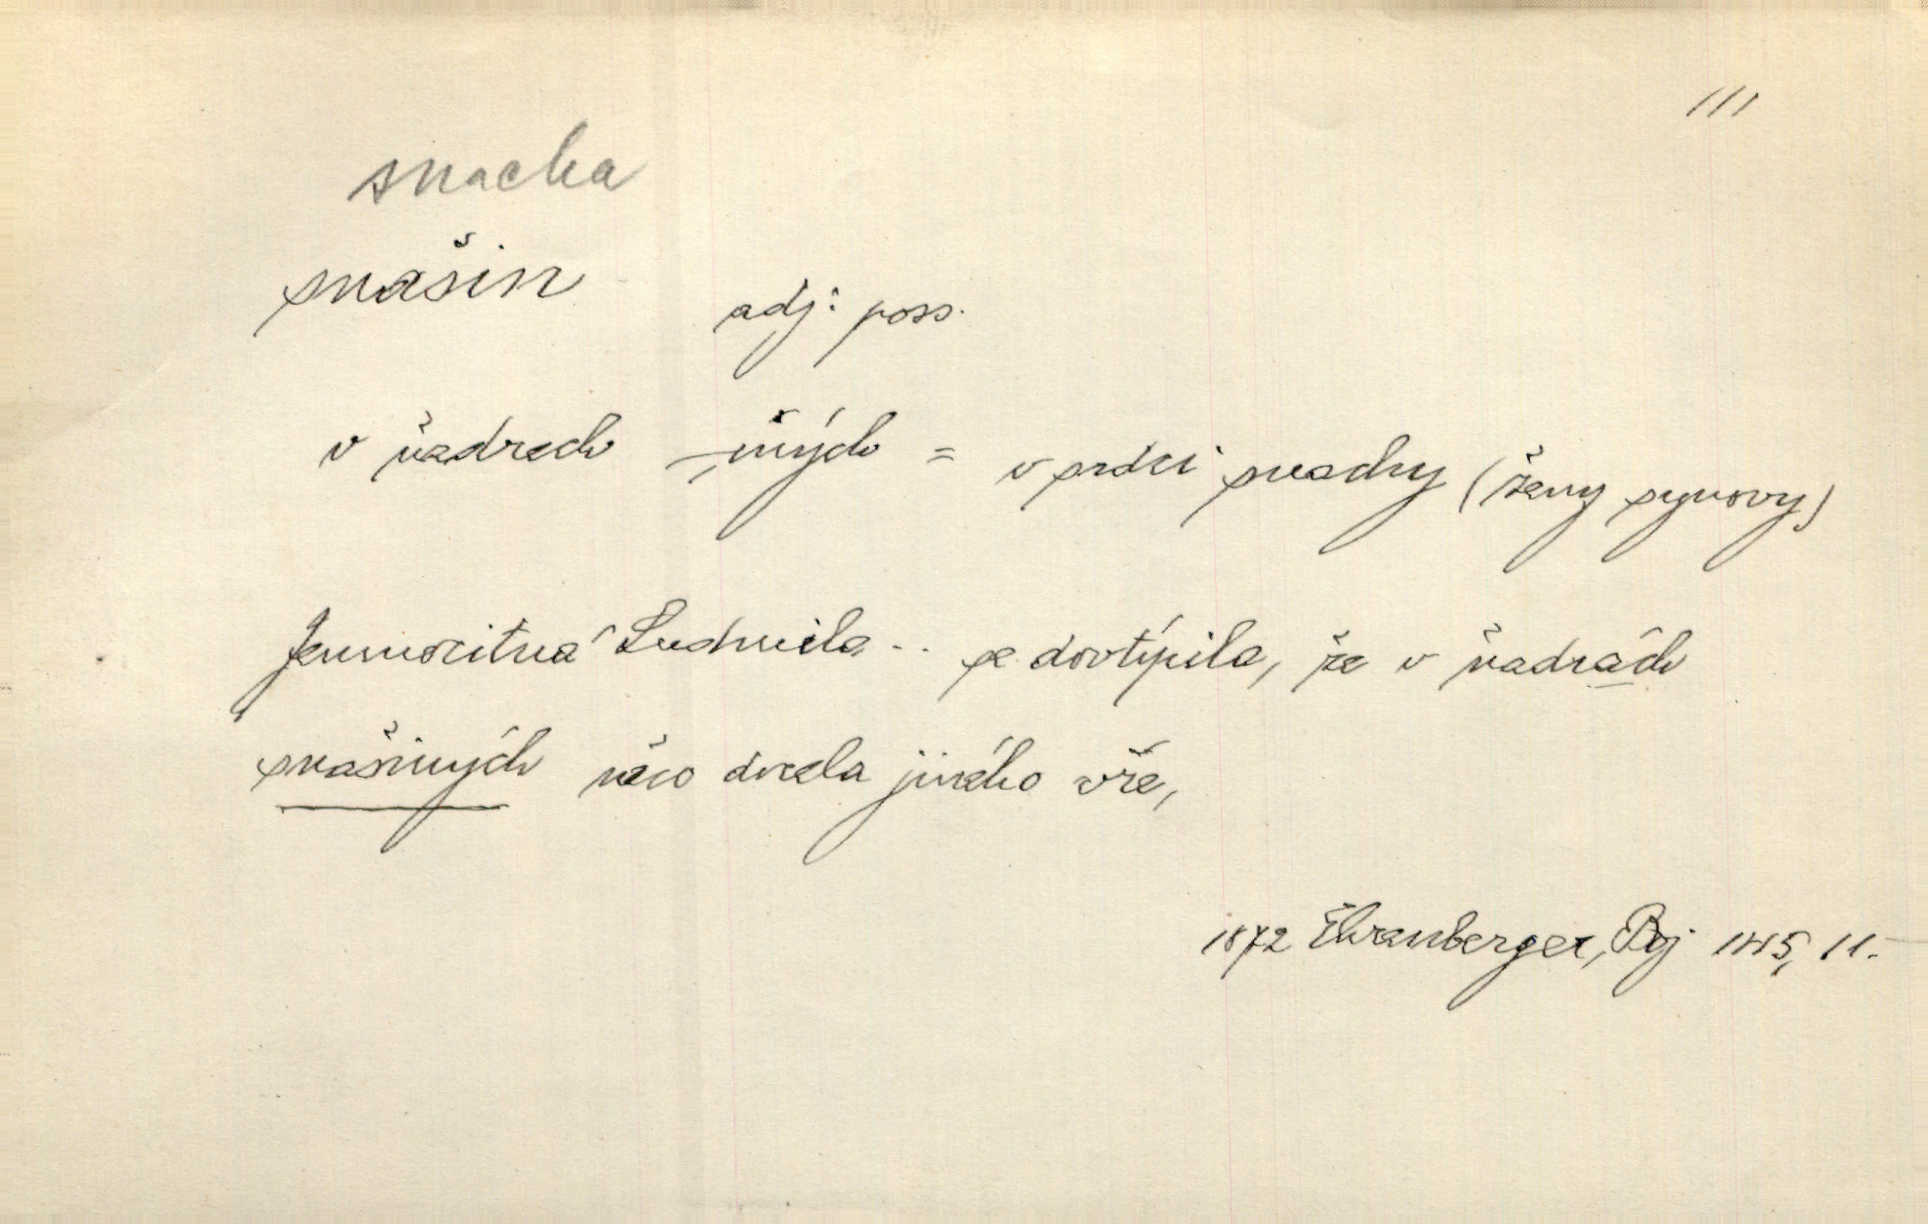 111
snacha
snašin
adj. poss.
v ňadrech -ných = v srdci snachy (ženy synovy)
Jemnocitná Ludmila .. se dovtípila, že v ňadrách
snašiných něco docela jiného vře,
1872 Ehrenberger, Boj 145, 11.